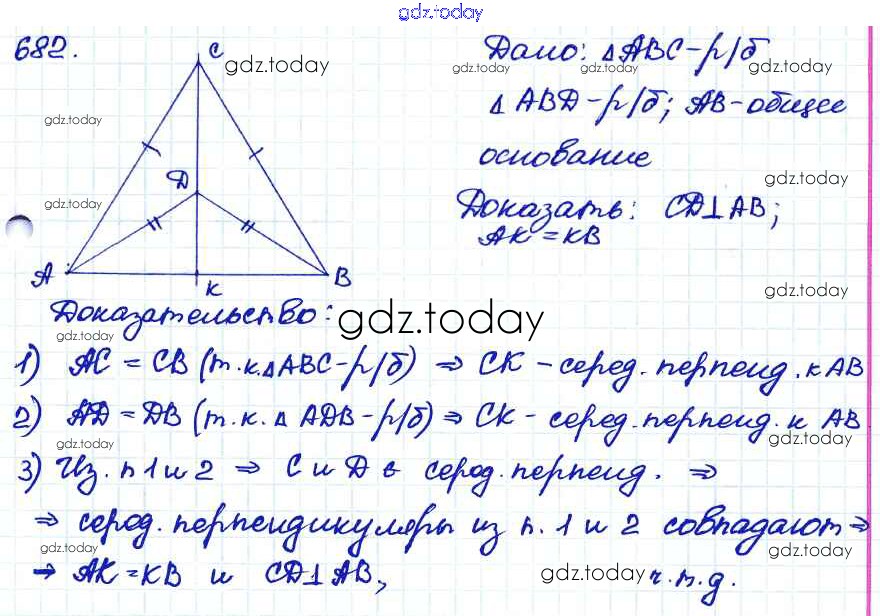 gdz.today
682.
C
gdz.today
Дано: △ABC-р/б
gdz.today gdz.today gdz.today
△ABD-р/б; AB-общее
gdz.today
основание
D
gdz.today
gdz.today
Доказать: CD⊥AB;
AK=KB
A
B
K
gdz.today
Доказательство:
gdz.today
gdz.today
1) AC = CB (т.к.△ABC-р/б) ⇒ CK - серед.перпенд.к AB
2) AD = DB (т.к.△ ADB-р/б) ⇒ CK - серед.перпенд.к AB
gdz.today
gdz.today
3) Из.п 1 и 2 ⇒ C и D ∈ серед.перпенд. ⇒
⇒ серед.перпендикуляры из п.1 и 2 совпадают ⇒
gdz.today
gdz.today
→ AK=KB и CD⊥AB,
gdz.today
ч.т.д.